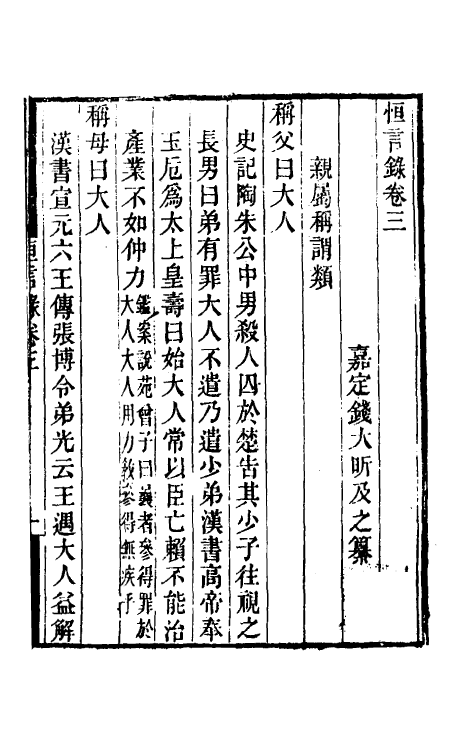 恒言錄卷三
嘉定錢大昕及之纂
親屬稱謂類
稱父曰大人
史記陶朱公中男殺人囚於楚告其少子往視之
長男曰弟有罪大人不遣乃遣少弟漢書高帝奉
玉卮為太上皇壽曰始大人常以臣亡賴不能治
產業不如仲力鑑案說苑曾子曰曩者參得罪於
大人大人用力教參得無疾乎
稱母曰大人
漢書宣元六王傳張博令弟光云王遇大人益解
恒言錄卷三
一